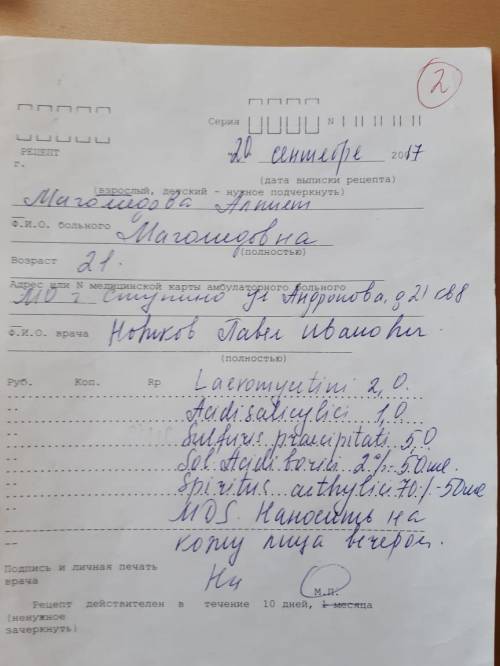 2
Серия N
20 сентября 2017
РЕЦЕПТ
г. (дата выписки рецепта)
(взрослый, детский - нужное подчеркнуть)
Магомедова
Ф.И.О. больного Магомедовна
(полностью)
Возраст 21.
Адрес или N медицинской карты амбулаторного больного
МО г Ступино ул Андропова, д 21 кв 8
Ф.И.О. врача Ножков Павел Иванович
(полностью)
Руб. Коп. Rp Laevomycetini 2,0.
Acidi salicylici 1,0.
Sulfuris praecipitati 5.0
Sol. Acidi borici 2% - 50 мл.
Spiritus aethylici 70% - 50мл
MDS. Наносить на
кожу лица вечером.
Подпись и личная печать
врача
М.П.
Рецепт действителен в течение 10 дней, 1 месяца
(ненужное
зачеркнуть)